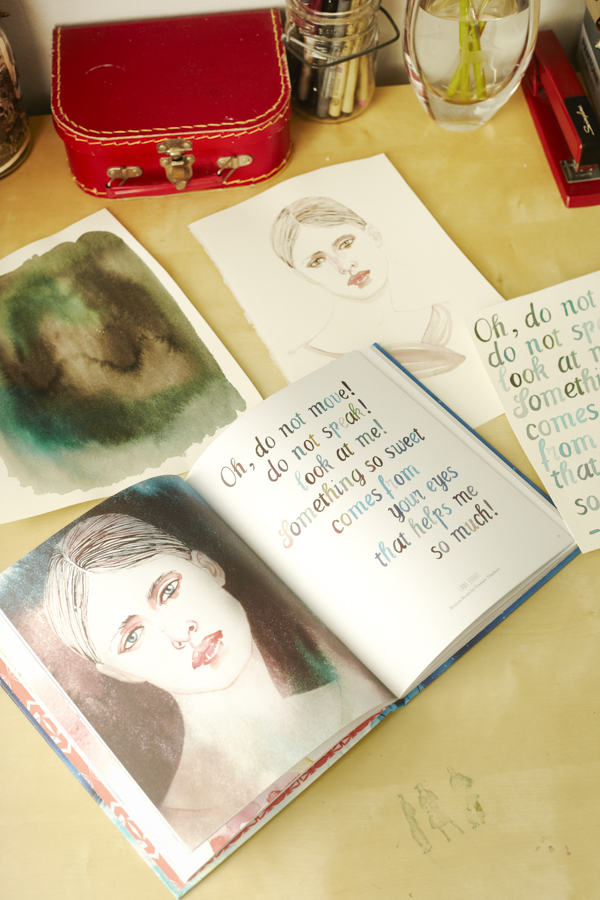 Oh, do not move!
do not speak!
look at me!
Something so sweet
comes from
your eyes
that helps me
so much!
Oh, do not
do not
look at
Somethi
comes
from
that
so